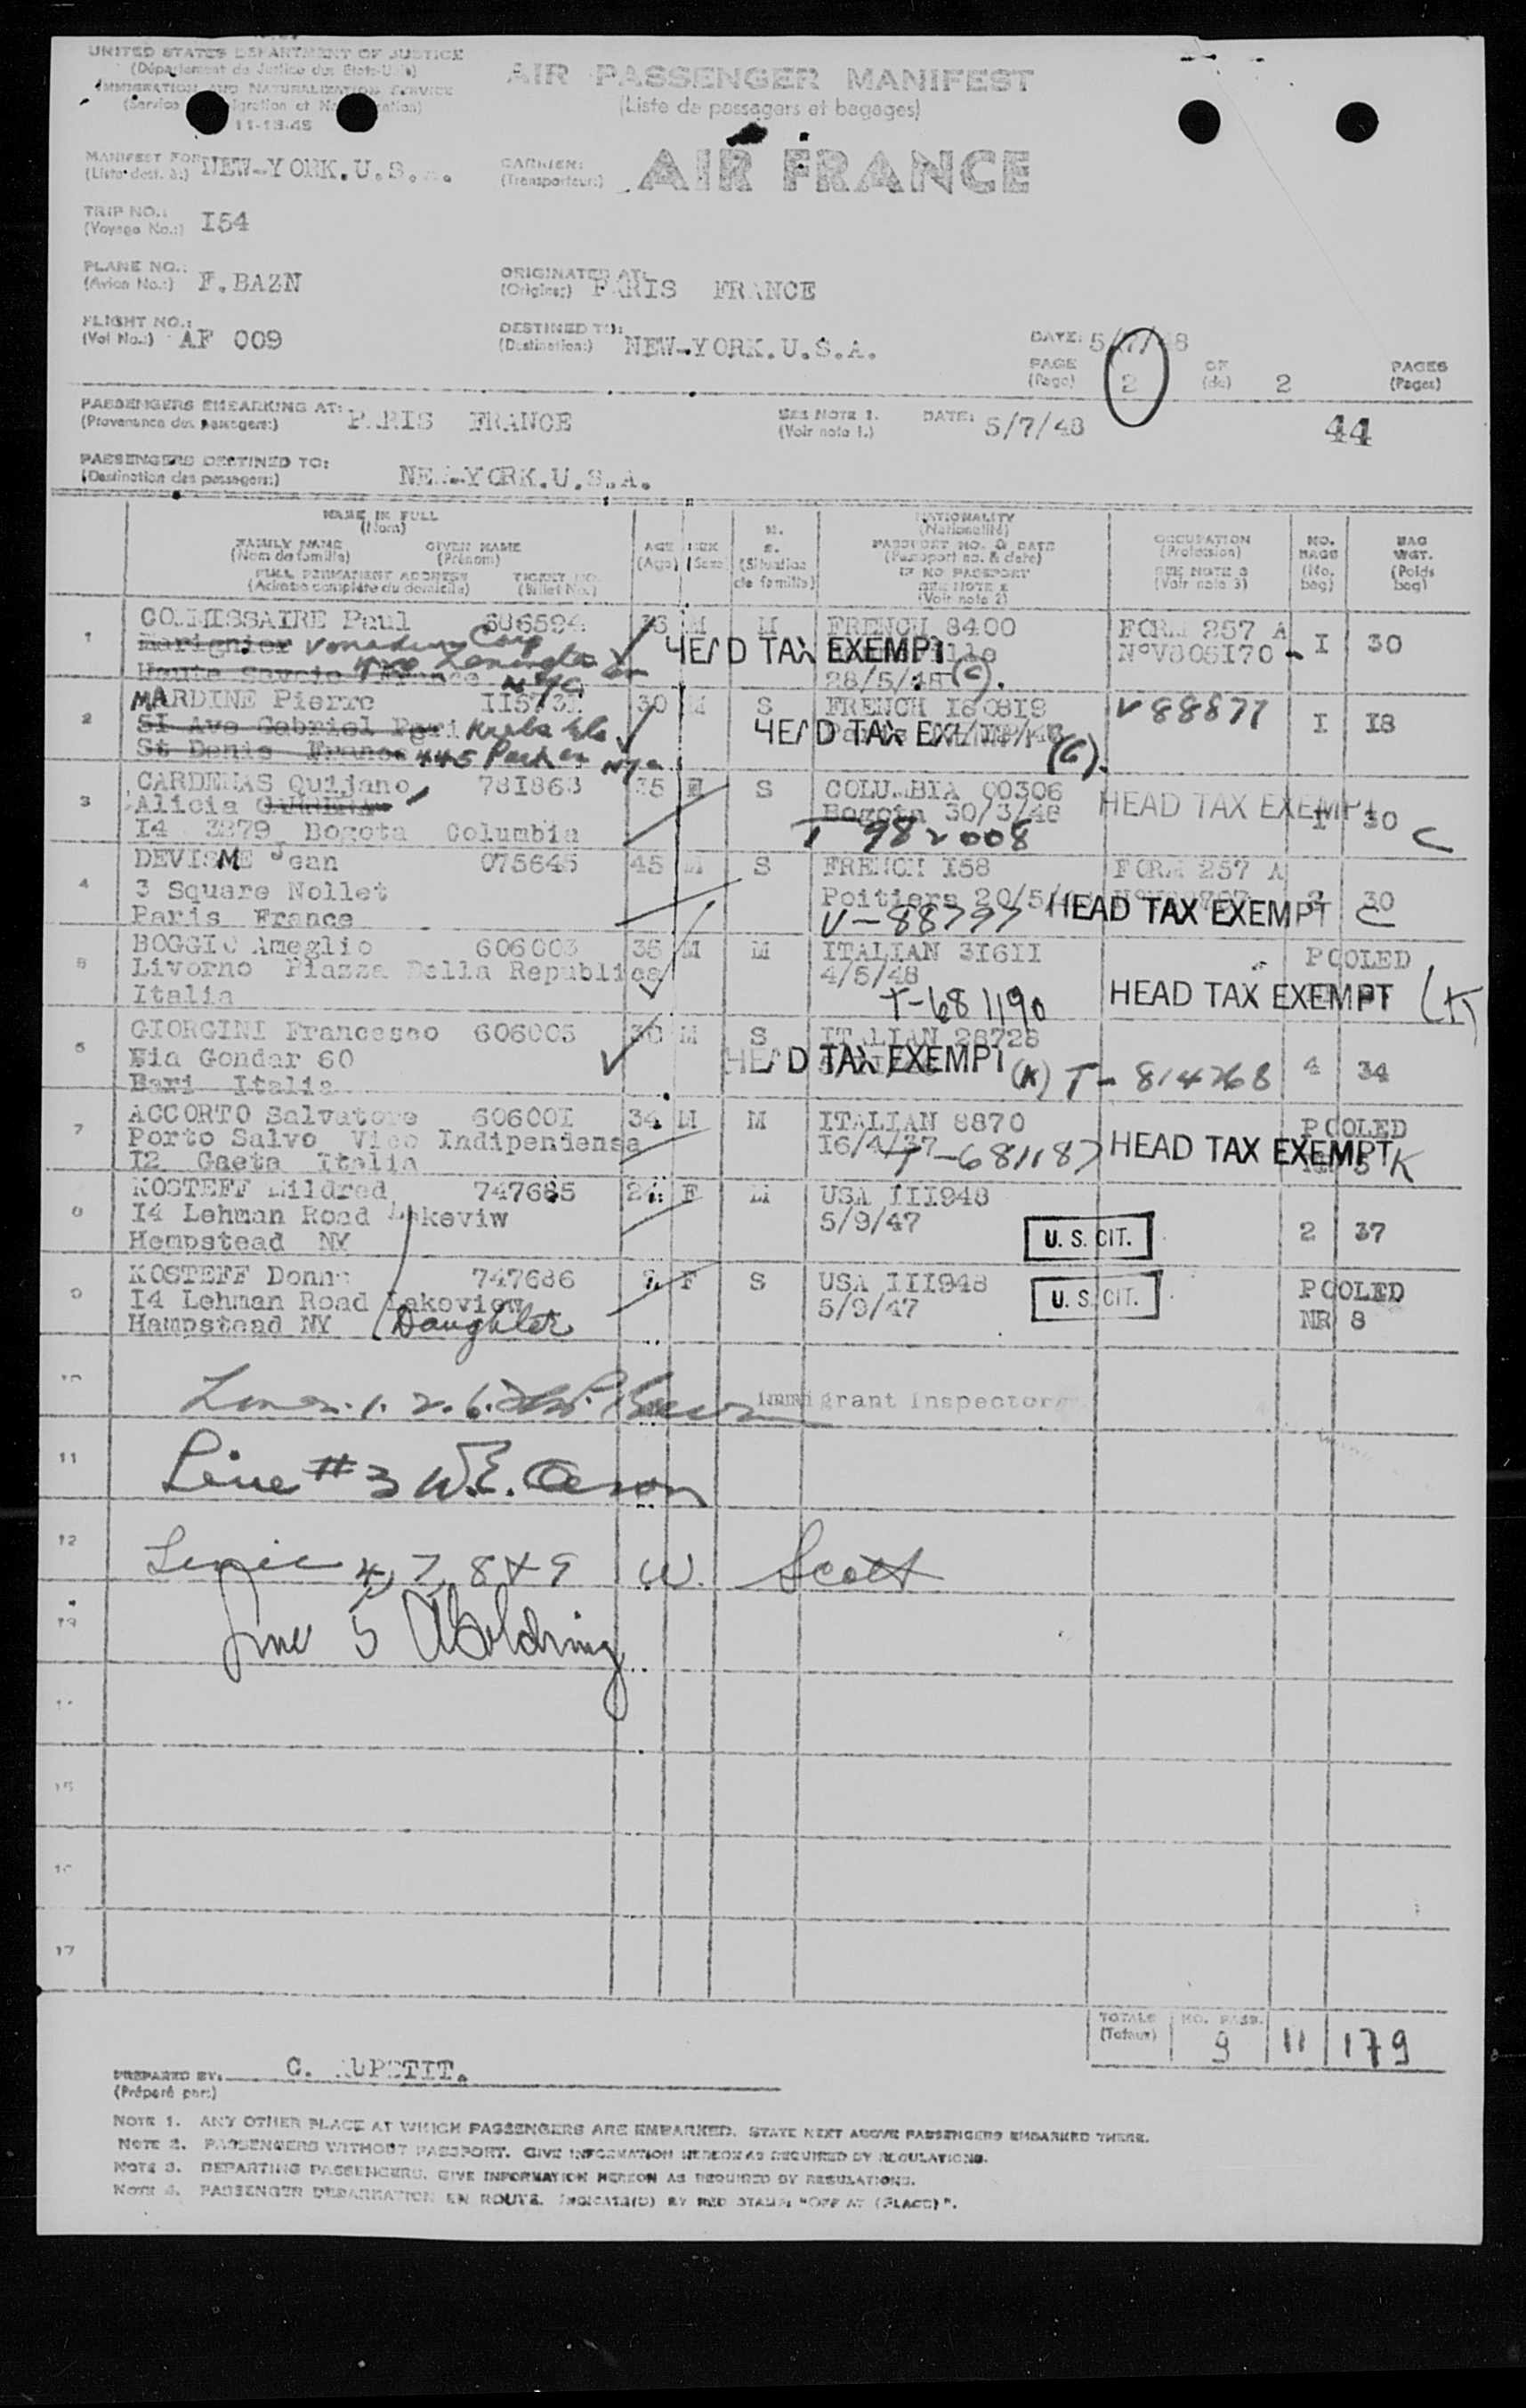 UNITED STATES DEPARTMENT OF JUSTICE
(Département de Justice des Etats-Unis)
IMMIGRATION AND NATURALIZATION SERVICE
11-13-45
AIR PASSENGER MANIFEST
(Liste de passagers et bagages)
MANIFEST FOR NEW-YORK.U.S.
(Liste dest. à:)
CARRIER: AIR FRANCE
(Transporteur:)
TRIP NO.: I54
(Voyage No.:)
PLANE NO.: F.BAZN
(Avion No.:)
ORIGINATED AT: PARIS FRANCE
(Origine:)
FLIGHT NO.: AF 009
(Vol No.:)
DESTINED TO: NEW-YORK.U.S.A.
(Destination:)
DATE: 5/7/48
PAGE 2 OF 2 PAGES
(Page) (de) (Pages)
PASSENGERS EMBARKING AT: PARIS FRANCE
(Provenance des passagers:)
SEE NOTE 1. DATE: 5/7/48
(Voir note 1.)
44
PASSENGERS DESTINED TO: NE -YORK.U.S.A.
(Destination des passagers:)
NAME IN FULL
(Nom)
FAMILY NAME GIVEN NAME
(Nom de famille) (Prénom)
FULL PERMANENT ADDRESS TICKET NO.
(Adresse complète du domicile) (Billet No.)
AGE SEX M.
(Age) (Sexe) S.
(Situation de famille)
NATIONALITY
(Nationalité)
PASSPORT NO. & DATE
(Passport no. & date)
IF NO PASSPORT
SEE NOTE 2
(Voir note 2)
OCCUPATION
(Profession)
SEE NOTE 3
(Voir note 3)
NO. BAGS
(No. bag)
BAG WGT.
(Poids bag)
1 COMMISSAIRE Paul 606594 M M FRENCH 8400 FORM 257 A
Marignier Corp HEAD TAX EXEMPT NºV805I70 I 30
Haute Savoie France NYC 28/5/48 (C).
2 MARDINE Pierre 30 M S FRENCH I80819 V88877 I I8
5I Ave Gabriel Peri HEAD TAX EXEMPT
St Denis France 445 Park av NYC (C).
3 CARDENAS Quijano 78I863 35 F S COLUMBIA 00306 HEAD TAX EXEMPT I 30
Alicia Bogota 30/3/48
I4 3279 Bogota Columbia T 982008 C
4 DEVISME Jean 075645 45 M S FRENCH I58 FORM 257 A
3 Square Nollet Poitiers 20/5/ 30
Paris France V-88797 HEAD TAX EXEMPT C
5 BOGGIO Ameglio 606003 35 M M ITALIAN 3I6II POOLED
Livorno Piazza Della Republica 4/5/48
Italia T-681190 HEAD TAX EXEMPT (K)
6 GIORGINI Francesco 606005 M S ITALIAN 28728
Via Gondar 60 HEAD TAX EXEMPT (K) T-814268 4 34
Bari Italia
7 ACCORTO Salvatore 60600I 34 M M ITALIAN 8870 POOLED
Porto Salvo Vico Indipendensa I6/4/37
I2 Gaeta Italia T-681187 HEAD TAX EXEMPT K
8 KOSTEFF Mildred 747685 F M USA III948
I4 Lehman Road Lakeviw 5/9/47
Hempstead NY U. S. CIT. 2 37
9 KOSTEFF Donna 747686 F S USA III948 POOLED
I4 Lehman Road Lakeview 5/9/47 U. S. CIT.
Hampstead NY Daughter NR 8
10
Lines 1. 2. 6. Immigrant Inspector
11
Line #3 W.E.
12
Lines 4, 7, 8 & 9 W. Scott
13
Line 5 A Goldring
15
16
17
TOTALS NO. PASS.
(Totaux) 9 11 179
PREPARED BY: C.
(Préparé par:)
NOTE 1. ANY OTHER PLACE AT WHICH PASSENGERS ARE EMBARKED. STATE NEXT ABOVE PASSENGERS EMBARKED THERE.
NOTE 2. PASSENGERS WITHOUT PASSPORT. GIVE INFORMATION HEREON AS REQUIRED BY REGULATIONS.
NOTE 3. DEPARTING PASSENGERS. GIVE INFORMATION HEREON AS REQUIRED BY REGULATIONS.
NOTE 4. PASSENGER DEBARKATION EN ROUTE. INDICATE(D) BY RED STAMP "OFF AT (PLACE)".